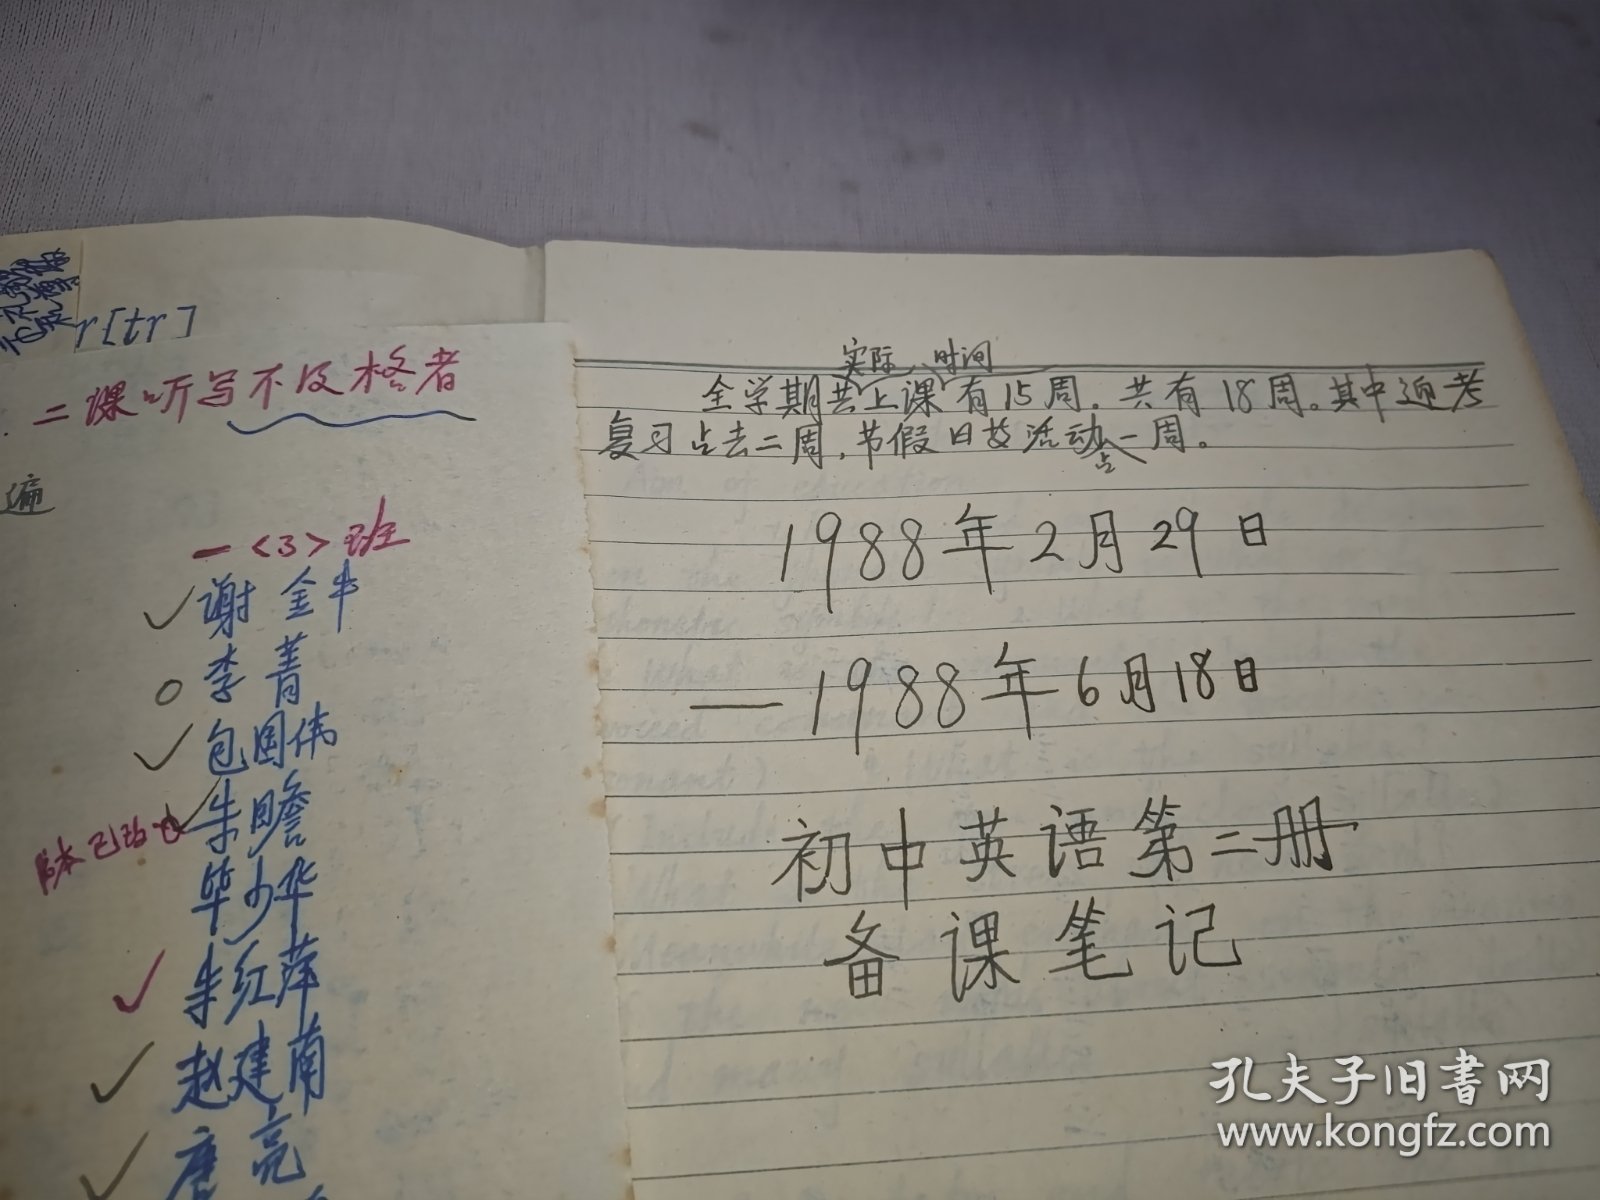 r[tr]
二课听写不及格者
遍
一<3>班
谢金牛
李菁
包国伟
朱瞻
毕少华
朱红萍
赵建南
唐亮
实际 时间
全学期共上课有15周,共有18周。其中迎考
复习占去二周,节假日放活动占一周。
1988年2月29日
—1988年6月18日
初中英语第二册
备课笔记
孔夫子旧书网
www.kongfz.com